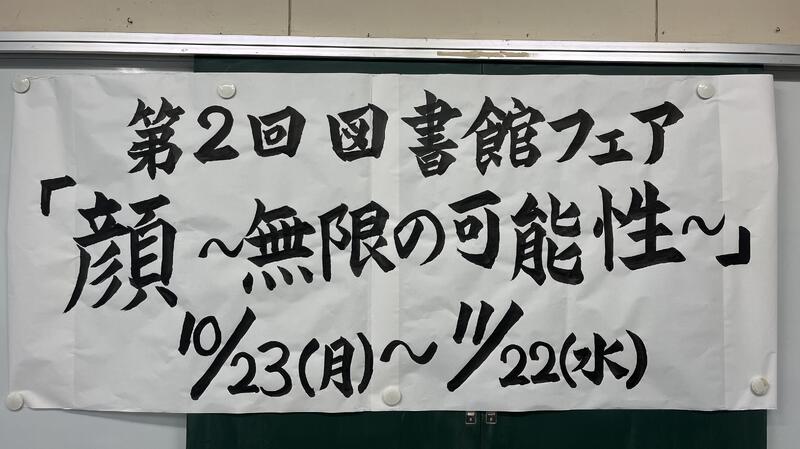 第2回図書館フェア
「顔～無限の可能性～」
10/23(月)～11/22(水)